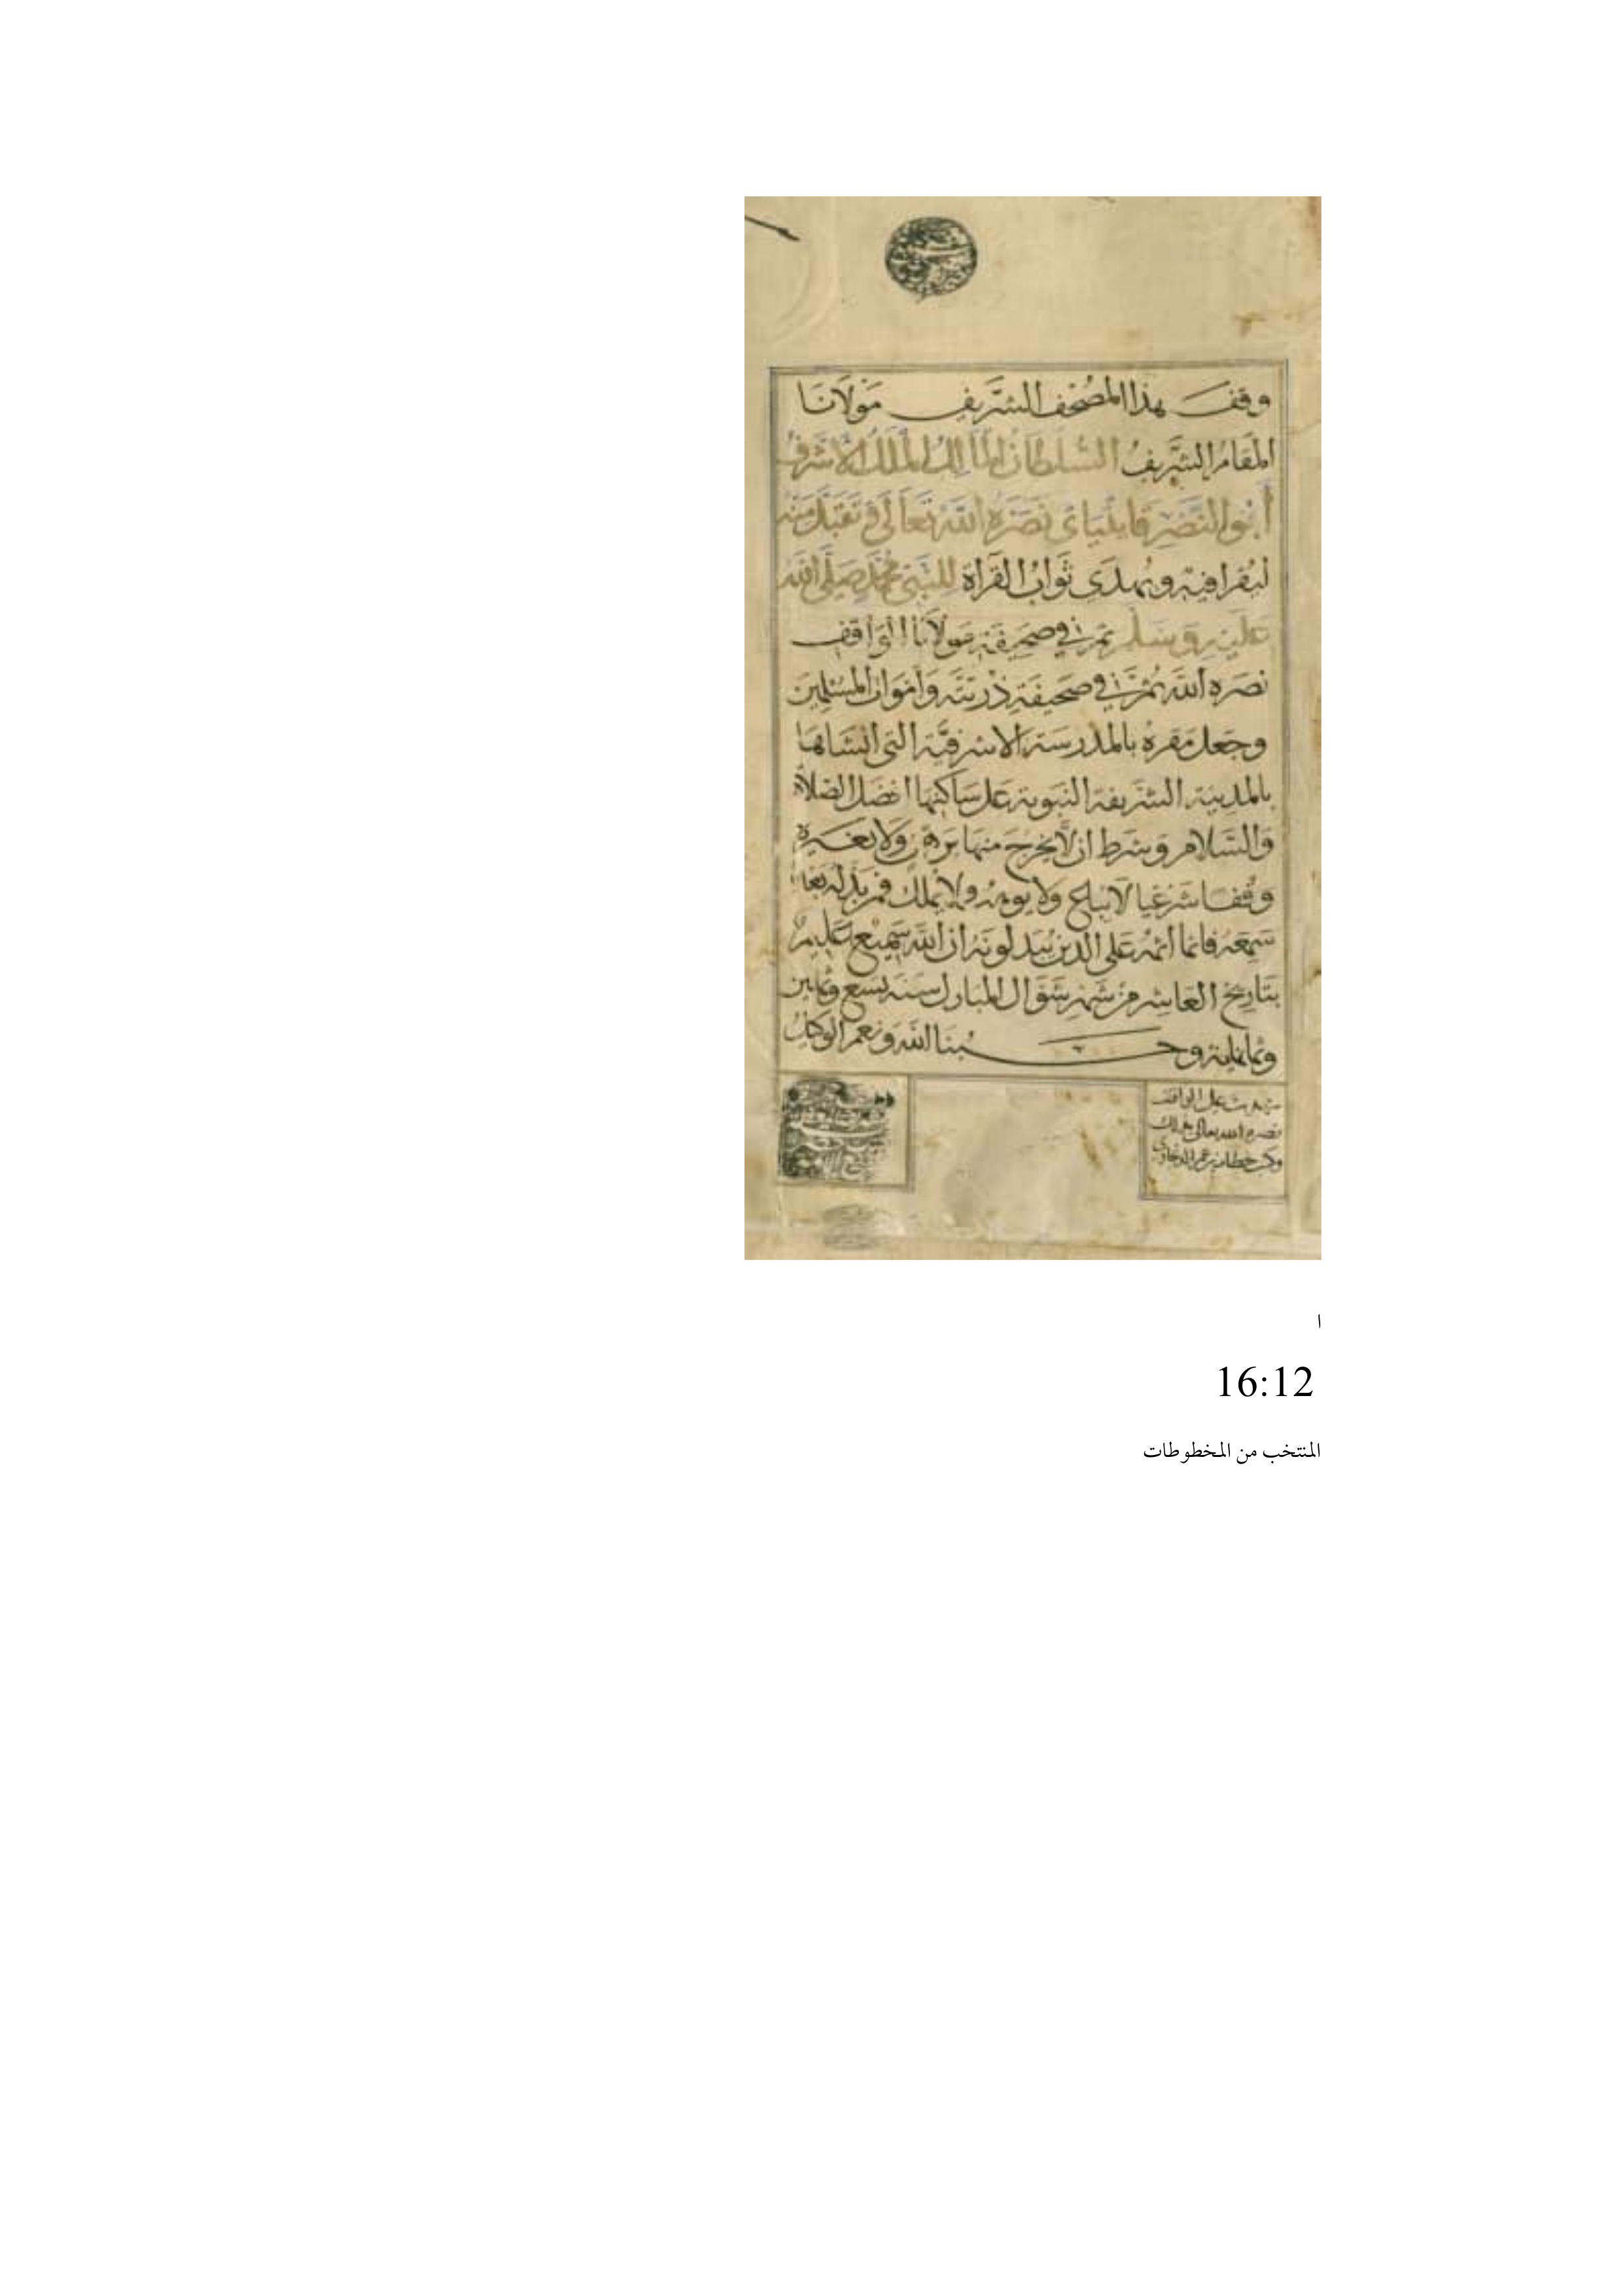 وقف هذا المصحف الشريف مولانا
المقام الشريف السلطان المالك الملك الاشرف
أبو النصر قايتباي نصره الله تعالى وتقبل منه
ليقرا فيه ويهدى ثواب القراة للنبي محمد صلى الله
عليه وسلم ثم في صحيفة مولانا الواقف
نصره الله ثم في صحيفة ذريته وأموات المسلمين
وجعل مقره بالمدرسة الاشرفية التي انشاها
بالمدينة الشريفة النبوية على ساكنها افضل الصلاة
والسلام وشرط ان لا يخرج منها برهن ولا بغيره
وقفا شرعيا لا يباع ولا يوهب ولا يملك فمن بدله بعدما
سمعه فانما اثمه على الذين يبدلونه ان الله سميع عليم
بتاريخ العاشر من شهر شوال المبارك سنة تسع وثمانين
وثمانماية وحسبنا الله ونعم الوكيل
شهدت على الواقف
نصره الله تعالى بذلك
وكتب خطاب بن عمر
ا
16:12
المنتخب من المخطوطات